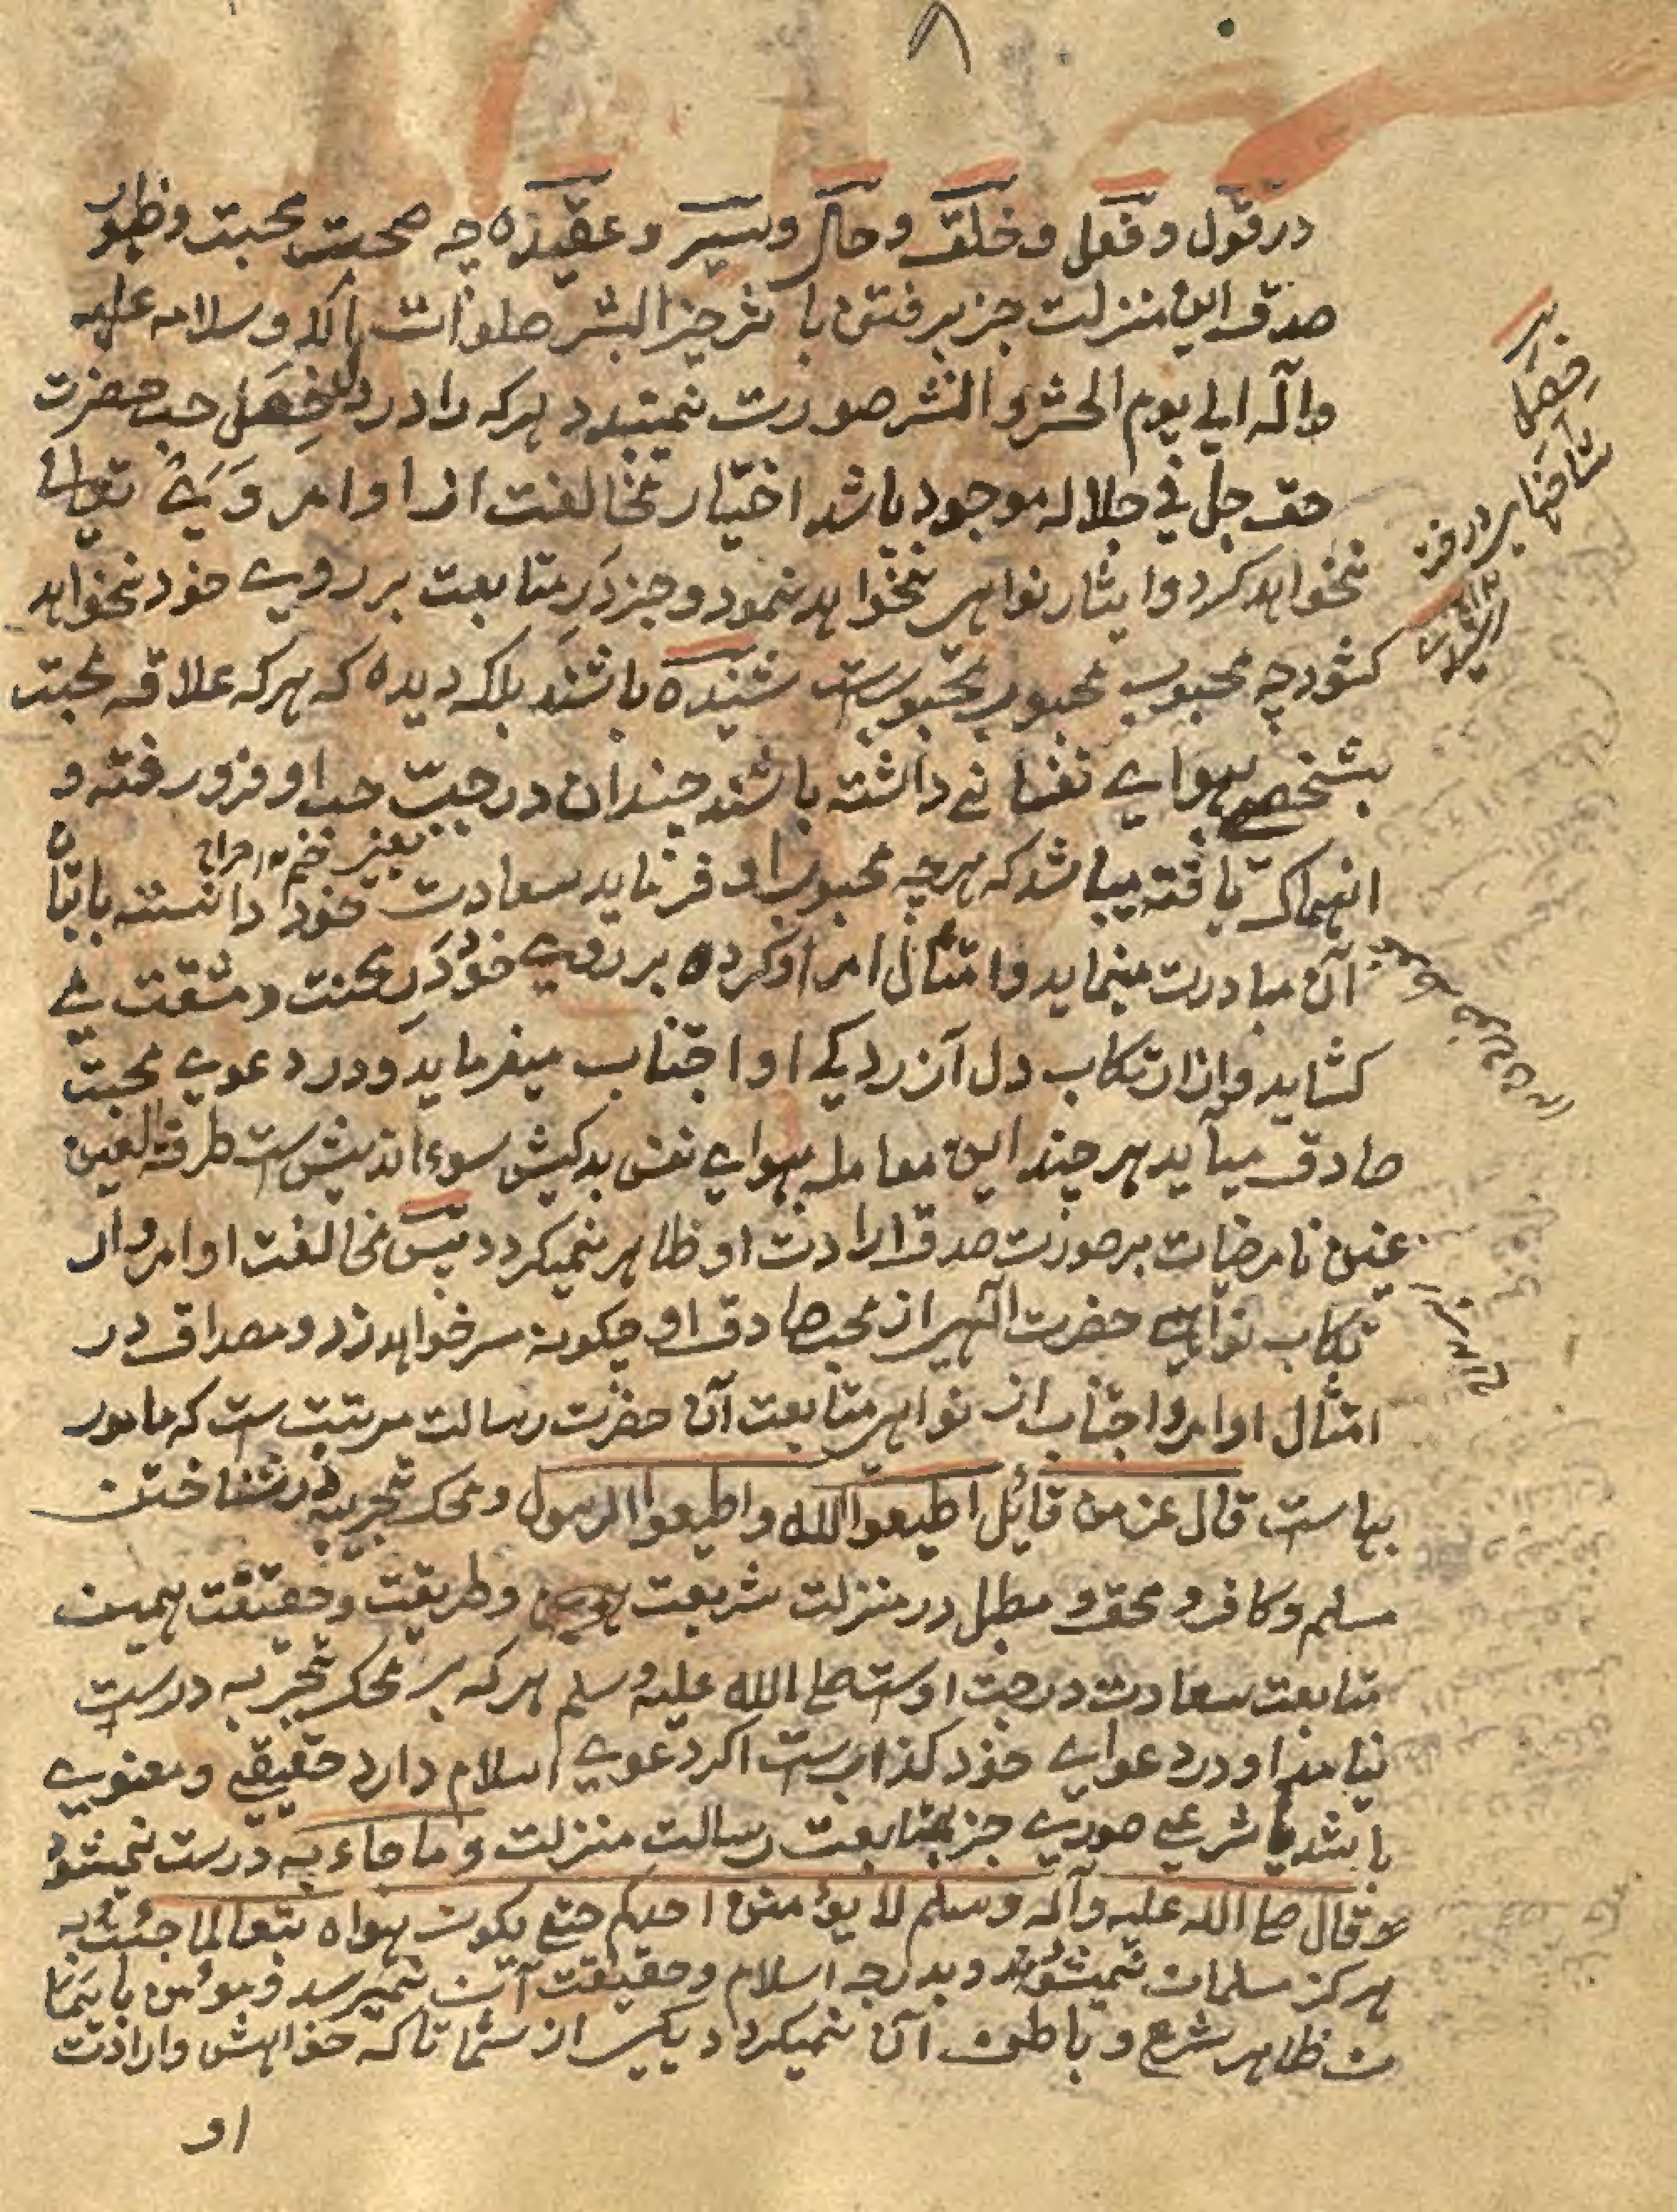 ۸
در قول و فعل و خلق و حال و سیر و عقیده چه صحت محبت و ظهور
صدق این منزلت جز برفتن با ثر خیر البشر صلوات الله و سلامه علیه
و آله الی یوم الحشر و النشر صورت نمیبندد هرکه را در دل حب حضرت
حق جل فی جلاله موجود باشد اختیار مخالفت از اوامر وی تعالی
نخواهد کرد و ایثار نواهی نخواهد نمود و جز در متابعت بر روی خود نخواهد
کشود چه محبوب محبوب محبوبست شنیده باشند بلکه دیده که هرکه علاقه محبت
بشخصی بهوای نفسانی داشته باشند چندان در جیب حب او فرو رفته و
انهماک یافته میباشد که هرچه محبوب او فرماید سعادت خود دانسته باتیا
ن
آن مبادرت مینماید و امتثال امر او کرده بر روی خود در محنت و مشقت می
کشاید و از ارتکاب دل آزردگی او اجتناب میفرماید و در دعوی محبت
صادق میآید هرچند این معامله بهوای نفس بدکیش سوء اندیش ست طرفة العین
عین نامرضیات بر صورت صدق ارادت او ظاهر نمیگردد پس مخالفت اوامر و ار
تکاب نواهی حضرت الهی از محب صادق او چگونه سر خواهد زد و مصداق در
امتثال اوامر و اجتناب از نواهی متابعت آن حضرت رسالت مرتبت ست که مامور
بهاست قال عز من قائل اطیعوا الله و اطیعوا الرسول و محک تجربه در شناختن
مسلم و کافر و محق و مبطل در منزلت شریعت و طریقت و حقیقت همین
متابعت سعادت درجت اوست صلی الله علیه و سلم هرکه بر محک تجربه درست
نیامد او در دعوای خود کذابست اگر دعوی اسلام دارد حقیقی و معنوی
باشد یا شرعی صوری جز بمتابعت رسالت منزلت و ما جاء به درست نمیشود
و قال صلی الله علیه و آله و سلم لا یؤمن احدکم حتی یکون هواه تبعا لما جئت به
هرکز مسلمان نمیشوند و بدرجه اسلام و حقیقت آن نمیرسد و مومن بایما
ن ظاهر شرع و باطن آن نمیگردد یکی از شما تا که خواهش و ارادت
او